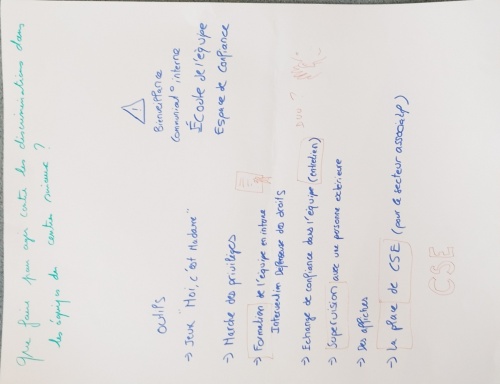 Que faire pour agir contre les discriminations dans
les équipes du centre ?
⚠
Bienveillance
Communicat° interne
Écoute de l'équipe
Espace de confiance
OUTILS
→ Jeux "Moi, c'est Madame"
→ Marche des privilèges
→ Formation de l'équipe en interne
Intervention Défenseur des droits
→ Echange de confiance dans l'équipe (entretien)
DUO ?
→ Supervision avec une personne extérieure
→ Des affiches
→ La place de CSE (pour le secteur associatif)
CSE